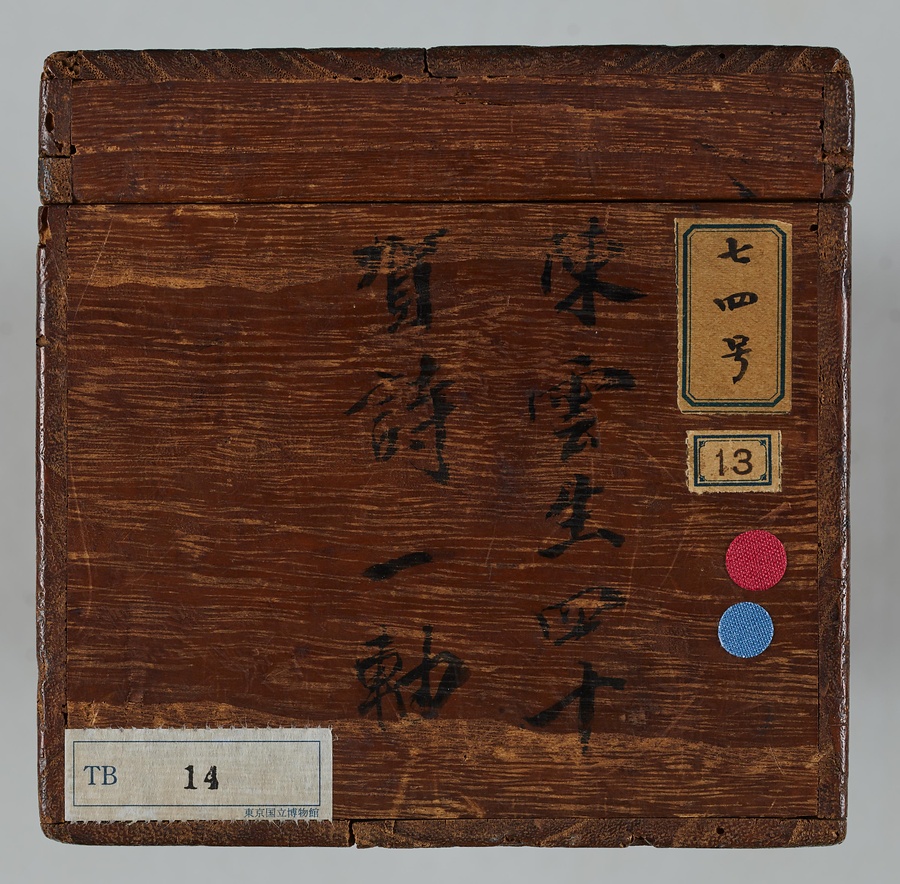 七四号
13
陳雲生四十
賀詩一軸
TB 14
東京国立博物館